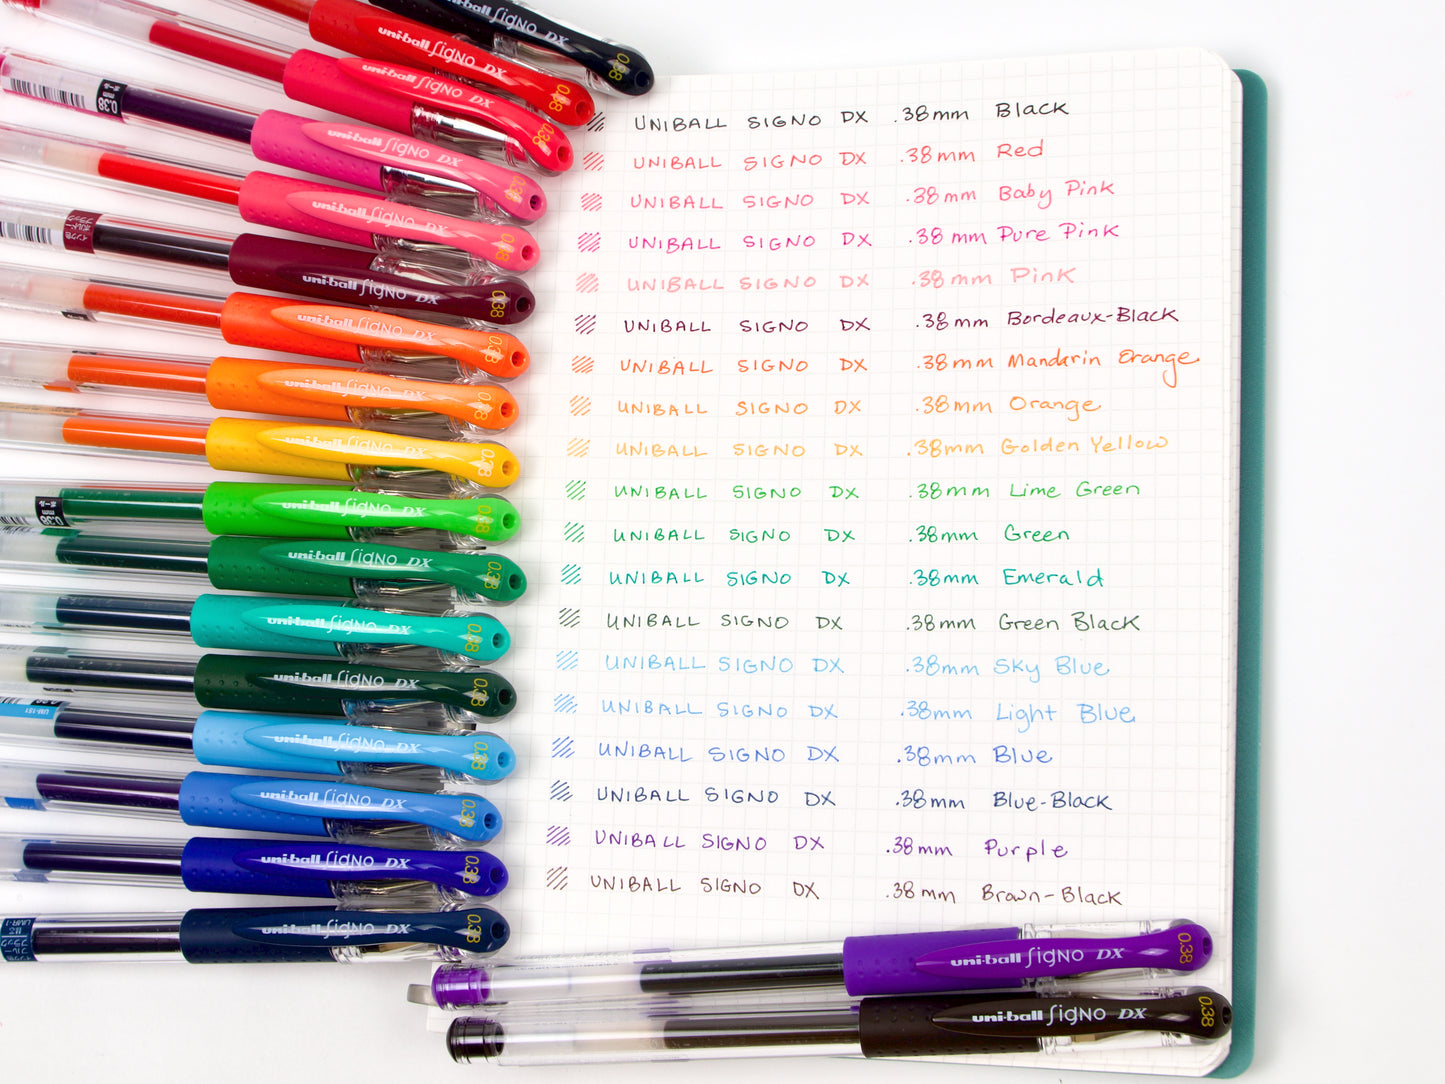 uni-ball Signo DX 0.38
uni-ball Signo DX 0.38
uni-ball Signo DX 0.38
0.38 mm ボール uni-ball Signo DX 0.38
uni-ball Signo DX 0.38
uni-ball Signo DX 0.38
uni-ball Signo DX 0.38
uni-ball Signo DX 0.38
uni-ball Signo DX 0.38
0.38 mm ボール uni-ball Signo DX 0.38
uni-ball Signo DX 0.38
uni-ball Signo DX 0.38
uni-ball Signo DX 0.38
UM-151 uni-ball Signo DX 0.38
uni-ball Signo DX 0.38
uni-ball Signo DX 0.38
uni-ball Signo DX 0.38
UNIBALL SIGNO DX .38mm Black
UNIBALL SIGNO DX .38mm Red
UNIBALL SIGNO DX .38mm Baby Pink
UNIBALL SIGNO DX .38mm Pure Pink
UNIBALL SIGNO DX .38mm Pink
UNIBALL SIGNO DX .38mm Bordeaux-Black
UNIBALL SIGNO DX .38mm Mandarin Orange
UNIBALL SIGNO DX .38mm Orange
UNIBALL SIGNO DX .38mm Golden Yellow
UNIBALL SIGNO DX .38mm Lime Green
UNIBALL SIGNO DX .38mm Green
UNIBALL SIGNO DX .38mm Emerald
UNIBALL SIGNO DX .38mm Green Black
UNIBALL SIGNO DX .38mm Sky Blue
UNIBALL SIGNO DX .38mm Light Blue
UNIBALL SIGNO DX .38mm Blue
UNIBALL SIGNO DX .38mm Blue-Black
UNIBALL SIGNO DX .38mm Purple
UNIBALL SIGNO DX .38mm Brown-Black
uni-ball Signo DX 0.38
uni-ball Signo DX 0.38